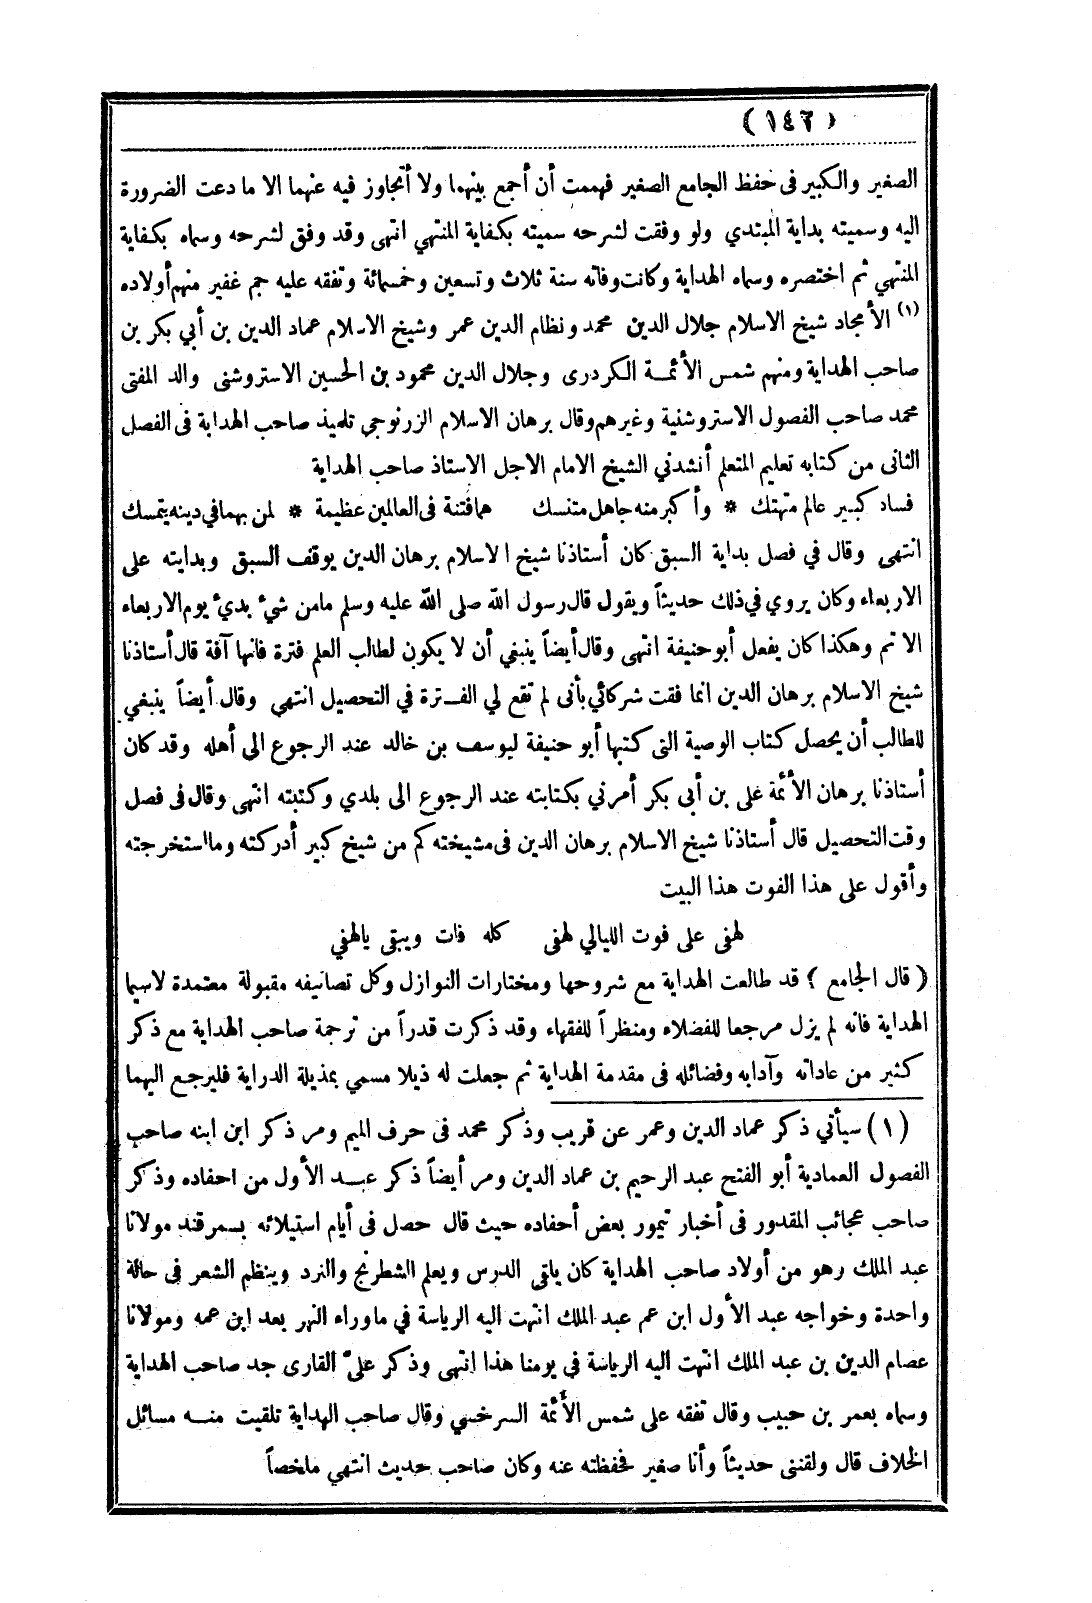 (١٤٢)
الصغير والكبير فى حفظ الجامع الصغير فهممت أن أجمع بينهما ولا أتجاوز فيه عنهما الا ما دعت الضرورة
اليه وسميته بداية المبتدي ولو وفقت لشرحه سميته بكفاية المنتهي انتهى وقد وفق لشرحه وسماه بكفاية
المنتهي ثم اختصره وسماه الهداية وكانت وفاته سنة ثلاث وتسعين وخمسمائة وتفقه عليه جم غفير منهم أولاده
(١) الأمجاد شيخ الاسلام جلال الدين محمد ونظام الدين عمر وشيخ الاسلام عماد الدين بن أبي بكر بن
صاحب الهداية ومنهم شمس الأئمة الكردرى وجلال الدين محمود بن الحسين الاستروشنى والد المفتى
محمد صاحب الفصول الاستروشنية وغيرهم وقال برهان الاسلام الزرنوجي تلميذ صاحب الهداية فى الفصل
الثانى من كتابه تعليم المتعلم أنشدني الشيخ الامام الاجل الاستاذ صاحب الهداية
فساد كبير عالم متهتك * وأكبر منه جاهل متنسك هما فتنة فى العالمين عظيمة * لمن بهما في دينه يتمسك
انتهى وقال في فصل بداية السبق كان أستاذنا شيخ الاسلام برهان الدين يوقف السبق وبدايته على
الاربعاء وكان يروي في ذلك حديثاً ويقول قال رسول الله صلى الله عليه وسلم مامن شيء بدئ يوم الاربعاء
الا تم وهكذا كان يفعل أبو حنيفة انتهى وقال أيضاً ينبغي أن لا يكون لطالب العلم فترة فانها آفة قال أستاذنا
شيخ الاسلام برهان الدين انما فقت شركائي بأنى لم تقع لي الفترة في التحصيل انتهي وقال أيضاً ينبغي
للطالب أن يحصل كتاب الوصية التى كتبها أبو حنيفة ليوسف بن خالد عند الرجوع الى أهله وقد كان
أستاذنا برهان الأئمة على بن أبي بكر أمرني بكتابته عند الرجوع الى بلدي وكتبته انتهى وقال فى فصل
وقت التحصيل قال أستاذنا شيخ الاسلام برهان الدين فى مشيخته كم من شيخ كبير أدركته وما استخرجته
وأقول على هذا الفوت هذا البيت
لهفى على فوت الليالي لهفى كله فات ويبقى يالهفي
(قال الجامع) قد طالعت الهداية مع شروحها ومختارات النوازل وكل تصانيفه مقبولة معتمدة لاسيما
الهداية فانه لم يزل مرجعا للفضلاء ومنظراً للفقهاء وقد ذكرت قدراً من ترجمة صاحب الهداية مع ذكر
كثير من عاداته وآدابه وفضائله فى مقدمة الهداية ثم جعلت له ذيلا مسمي بمذيلة الدراية فليرجع اليهما
(١) سيأتي ذكر عماد الدين وعمر عن قريب وذكر محمد فى حرف الميم ومر ذكر ابن ابنه صاحب
الفصول العمادية أبو الفتح عبد الرحيم بن عماد الدين ومر أيضاً ذكر عبد الأول من احفاده وذكر
صاحب عجائب المقدور فى أخبار تيمور بعض أحفاده حيث قال حصل فى أيام استيلائه بسمرقند مولانا
عبد الملك رهو من أولاد صاحب الهداية كان ياتى الدرس ويعلم الشطرنج والنرد وينظم الشعر فى حالة
واحدة وخواجه عبد الأول ابن عم عبد الملك انتهت اليه الرياسة في ماوراء النهر بعد ابن عمه ومولانا
عصام الدين بن عبد الملك انتهت اليه الرياسة في يومنا هذا انتهى وذكر علىّ القارى جد صاحب الهداية
وسماه بعمر بن حبيب وقال تفقه على شمس الأئمة السرخسي وقال صاحب الهداية تلقيت منه مسائل
الخلاف قال ولقننى حديثاً وأنا صغير فحفظته عنه وكان صاحب حديث انتهي ملخصاً